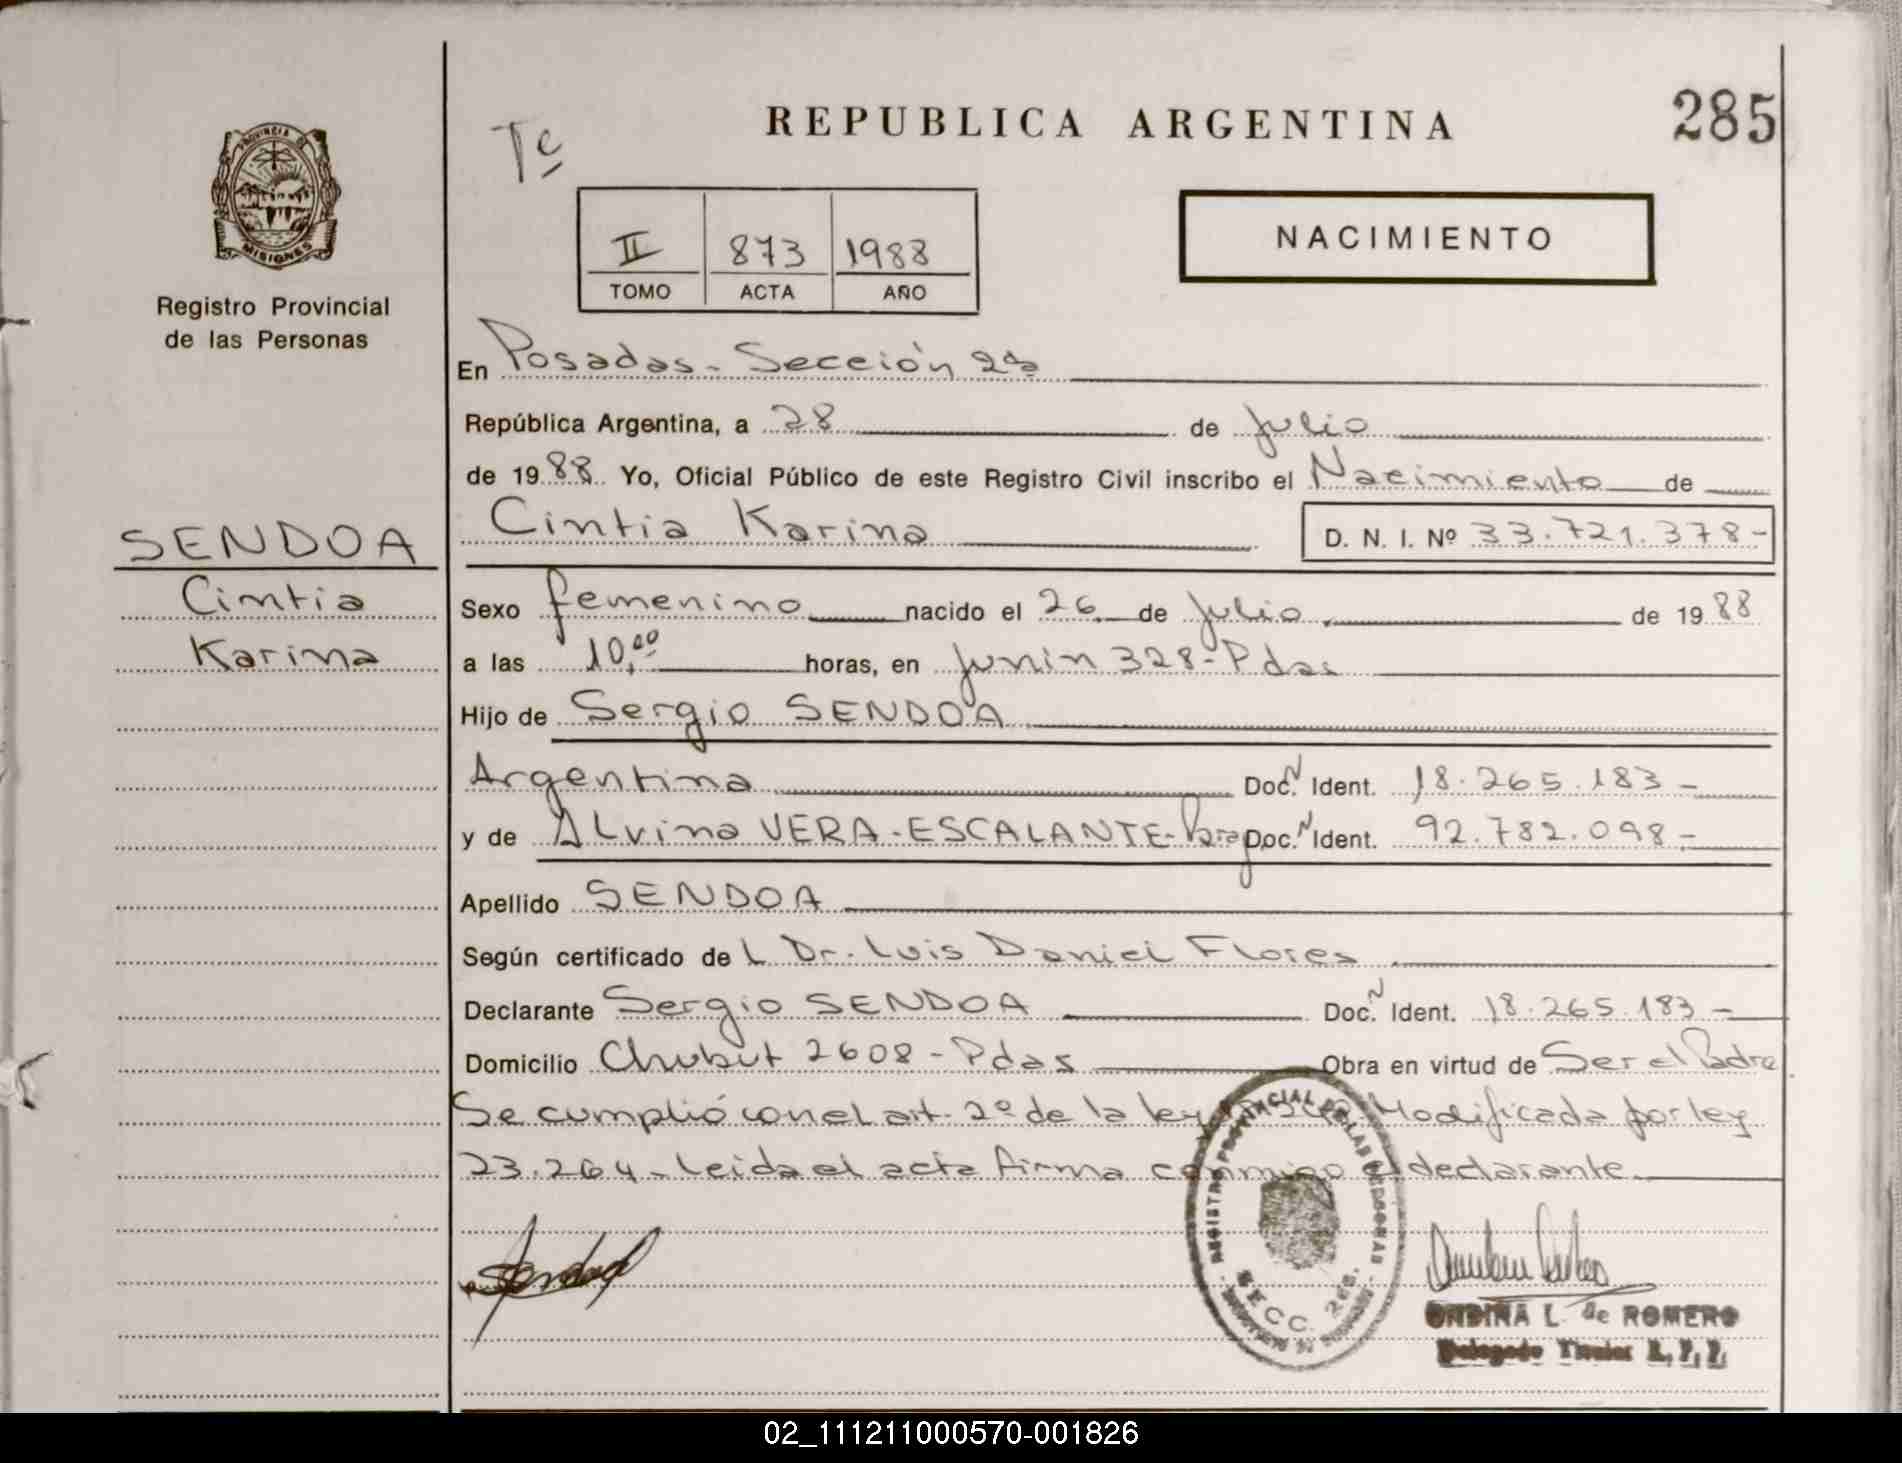 REPUBLICA ARGENTINA
285
Tº
PROVINCIA DE
MISIONES
Registro Provincial
de las Personas
II 873 1988
TOMO ACTA AÑO
NACIMIENTO
En Posadas - Sección 2da
República Argentina, a 28 de Julio
de 1988 Yo, Oficial Público de este Registro Civil inscribo el Nacimiento de
Cintia Karina D. N. I. Nº 33.721.378-
SENDOA
Cintia
Karina
Sexo femenino nacido el 26 de Julio de 1988
a las 10,00 horas, en Junin 328 - Pdas
Hijo de Sergio SENDOA
Argentina Doc. N Ident. 18.265.183 -
y de ALvina VERA - ESCALANTE - Doc. N Ident. 92.782.098 -
Apellido SENDOA
Según certificado de L Dr. Luis Daniel Flores
Declarante Sergio SENDOA Doc. N Ident. 18.265.183 -
Domicilio Chubut 2608 - Pdas Obra en virtud de Ser el Padre
Se cumplió con el art. 2º de la ley Modificada por ley
23.264 - Leida el acta firma conmigo el declarante.
REGISTRO PROVINCIAL DE LAS PERSONAS
SECC. 2da.
Sendoa
ONDINA L. de ROMERO
Delegado Titular R. P. P.
02_111211000570-001826